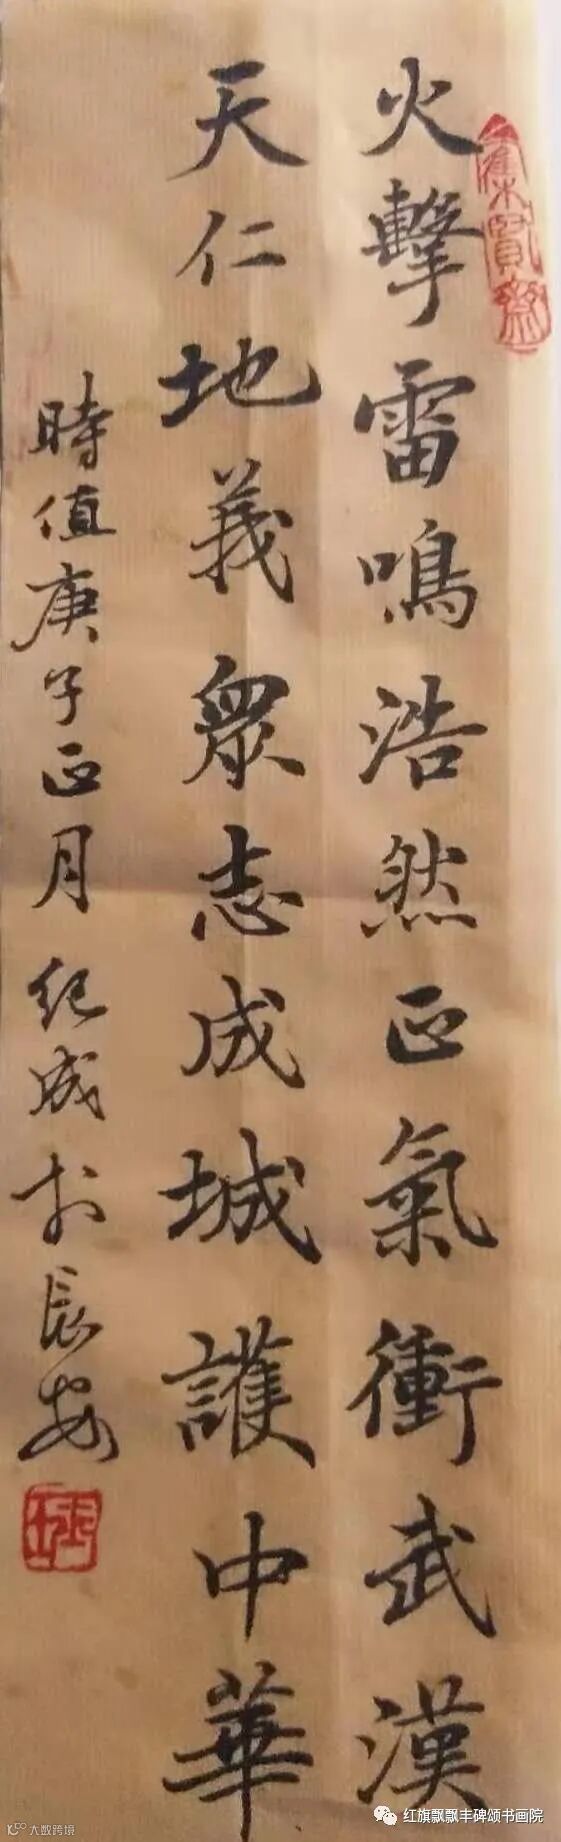 火擊雷鳴浩然正氣衝武漢
天仁地義眾志成城護中華
時值庚子正月紀成於長安
集賢齋
红旗飘飘丰碑颂书画院
大数跨境